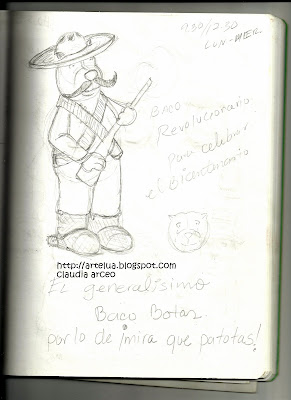 9:30/12:30
LUN-MIER.
Baco
Revolucionario
para celebrar
el Bicentenario
http://artelua.blogspot.com
claudia arceo
El generalísimo
Baco Botas
por lo de ¡mira que patotas!